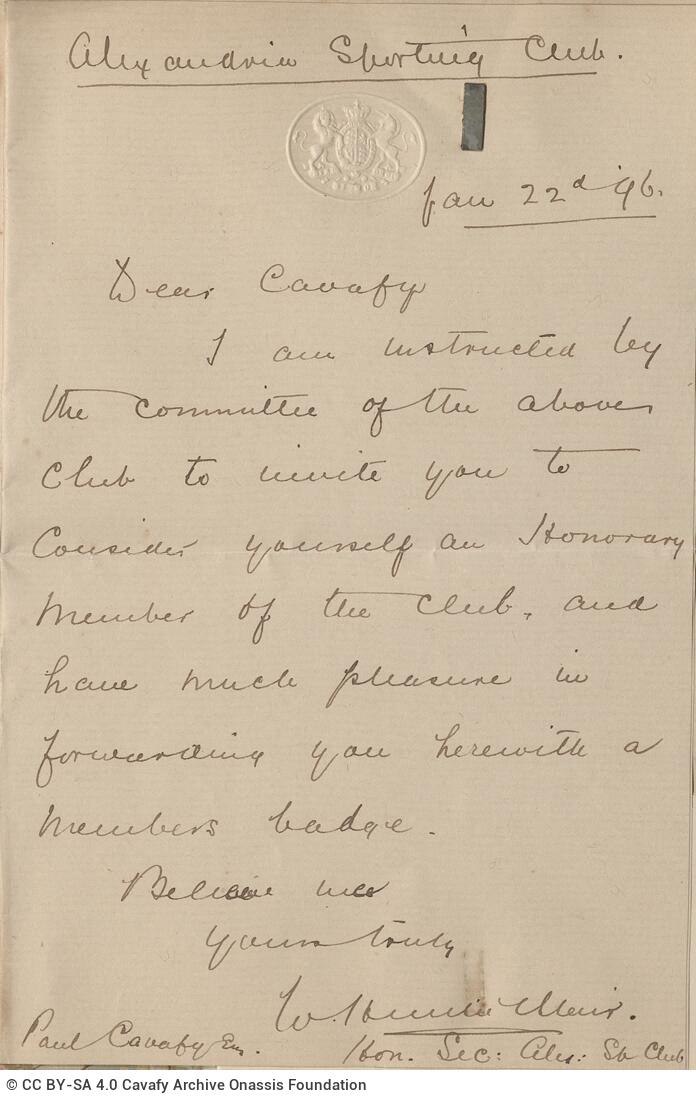 Alexandria Sporting Club.
Jan 22d '96.
Dear Cavafy
I am instructed by
the committee of the above
Club to invite you to
Consider yourself an Honorary
Member of the Club, and
have much pleasure in
forwarding you herewith a
Members badge.
Believe me
Yours truly
W. Muir.
Hon. Sec: Alex: Sp Club
Paul Cavafy Esq.
© CC BY-SA 4.0 Cavafy Archive Onassis Foundation